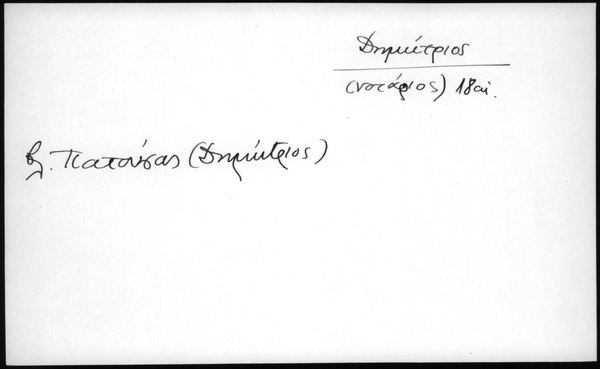 Δημήτριος
(νοτάριος) 18 αι.
βλ. Πατούσας (Δημήτριος)